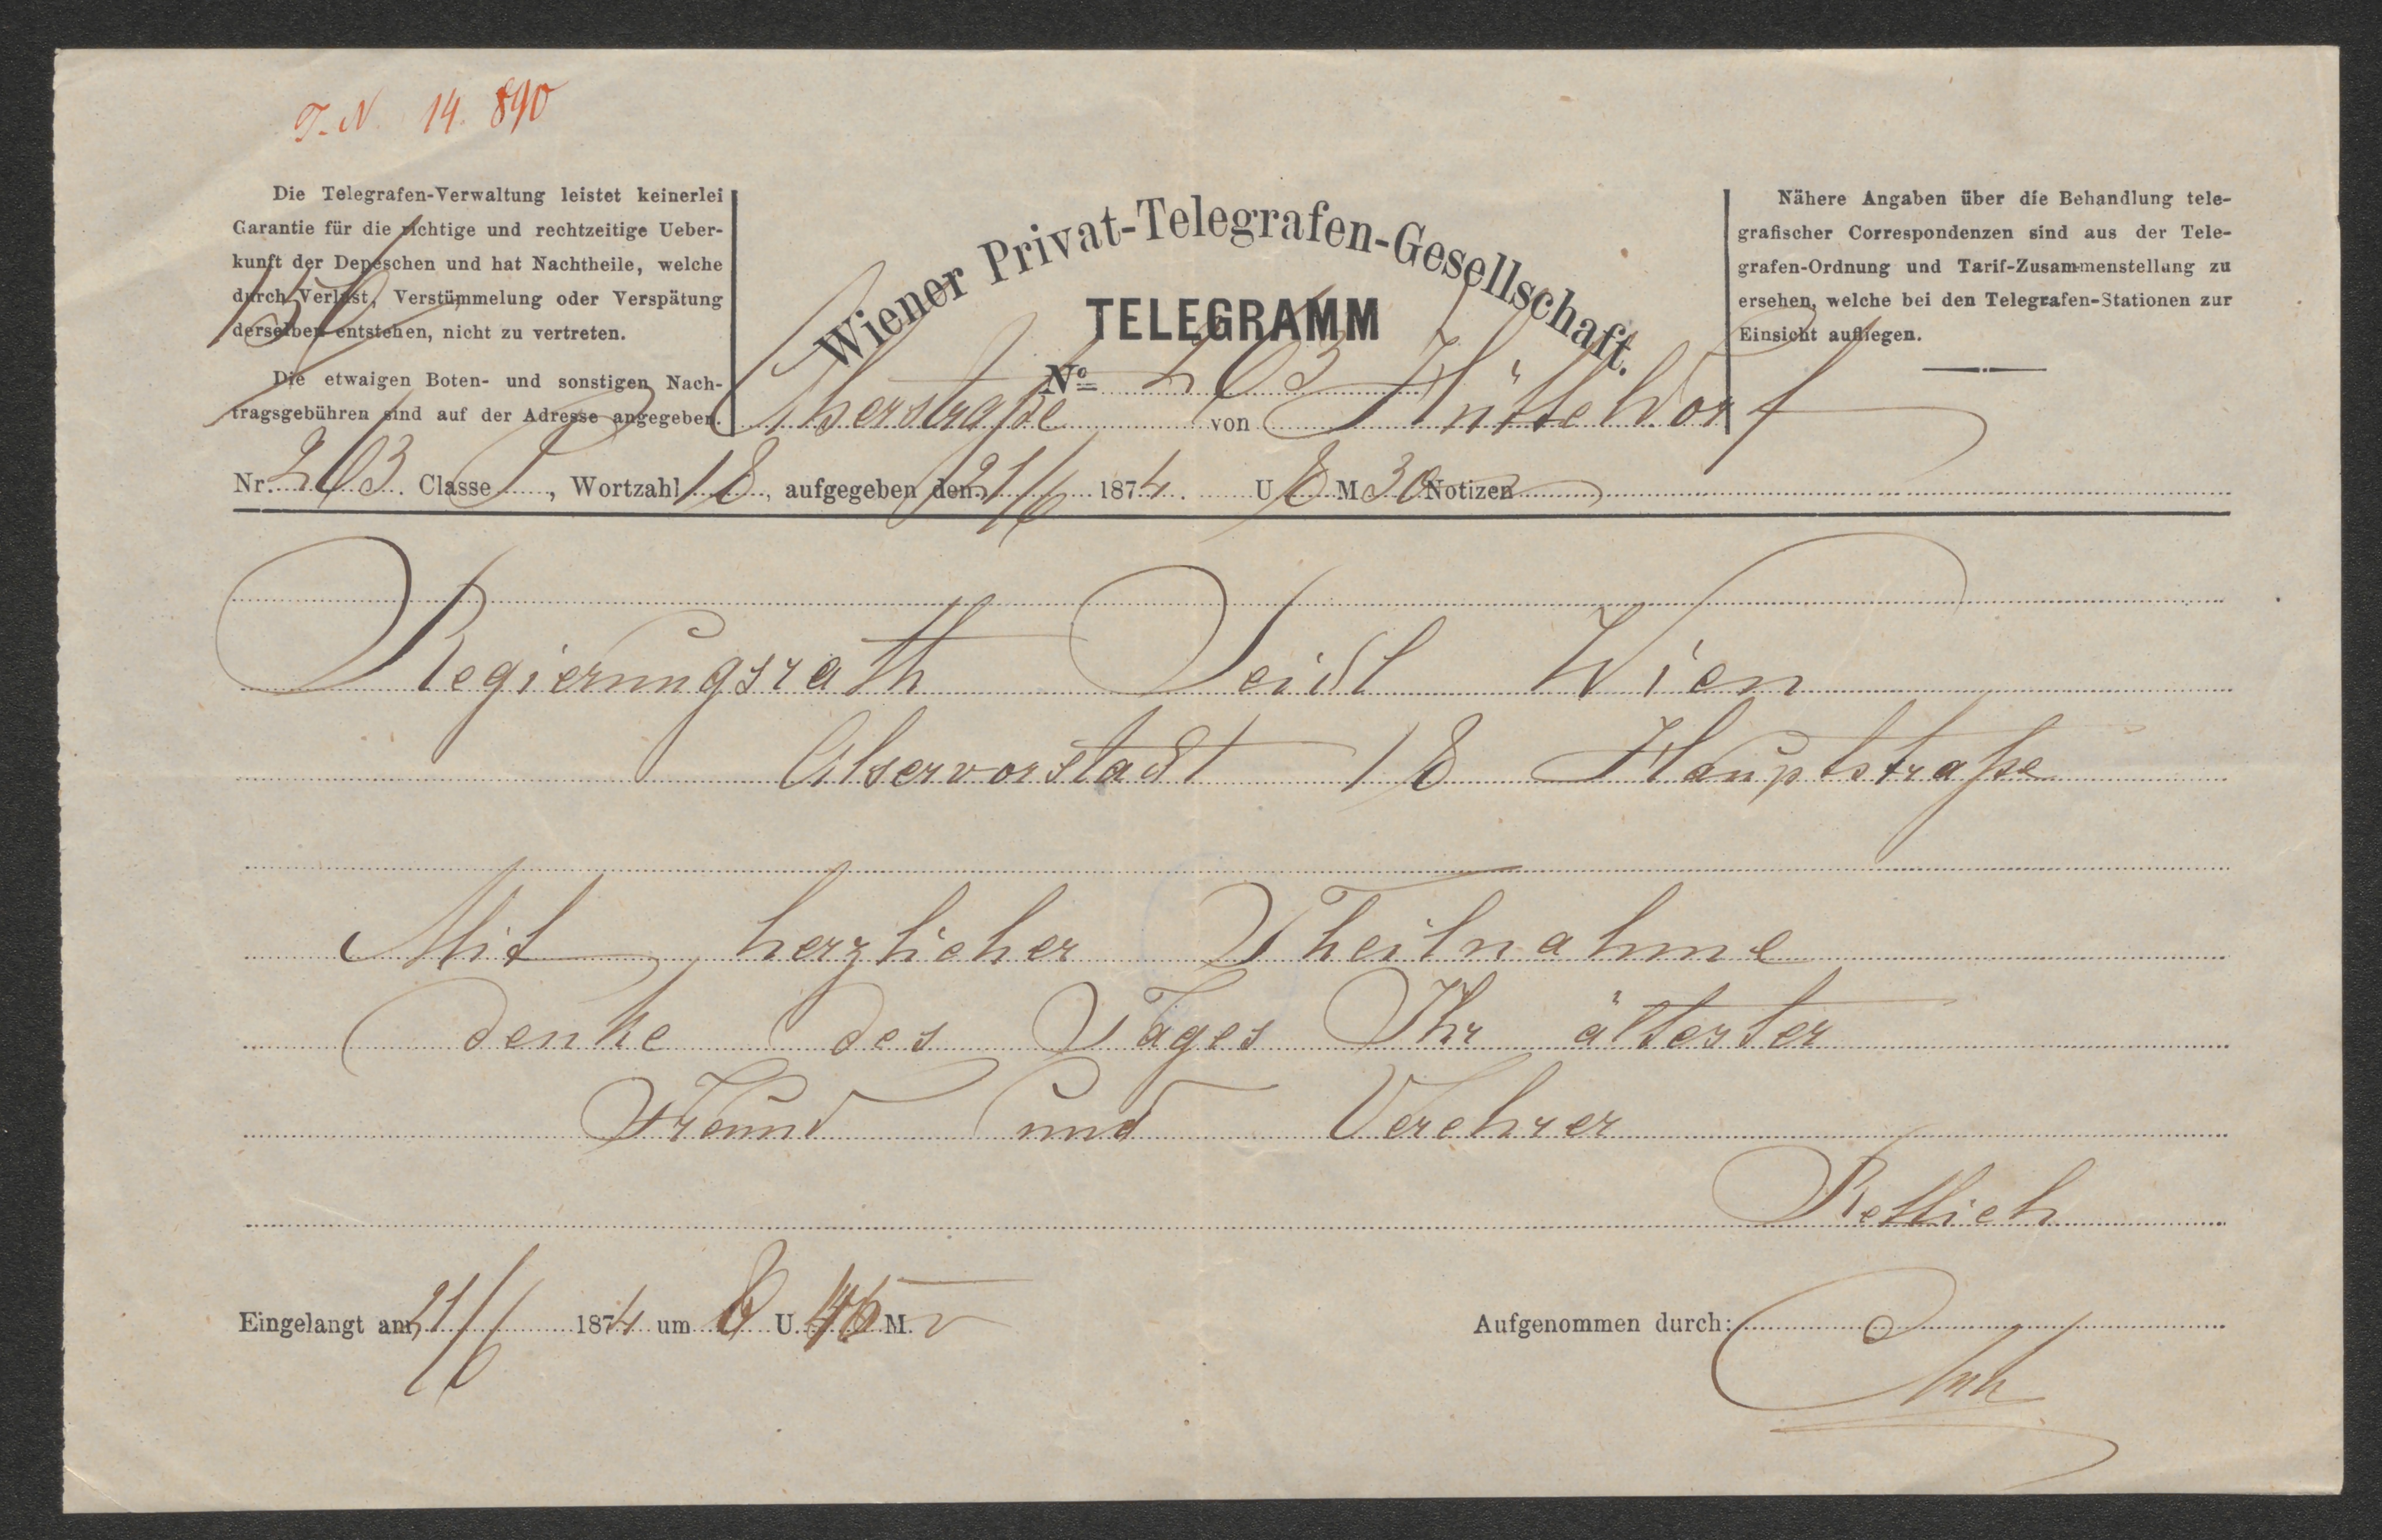 T. N. 14. 890
Die Telegrafen-Verwaltung leistet keinerlei
Garantie für die richtige und rechtzeitige Ueber-
kunft der Depeschen und hat Nachtheile, welche
durch Verlust, Verstümmelung oder Verspätung
derselben entstehen, nicht zu vertreten.
Die etwaigen Boten- und sonstigen Nach-
tragsgebühren sind auf der Adresse angegeben.
Wiener Privat-Telegrafen-Gesellschaft.
TELEGRAMM
No 203
von Hütteldorf
Nähere Angaben über die Behandlung tele-
grafischer Correspondenzen sind aus der Tele-
grafen-Ordnung und Tarif-Zusammenstellung zu
ersehen, welche bei den Telegrafen-Stationen zur
Einsicht aufliegen.
Nr. 203 Classe , Wortzahl 18, aufgegeben den 21/6 1874. U 8 M 30 Notizen
Regierungsrath Seidl Wien
Alservorstadt 18 Hauptstraße
Mit herzlicher Theilnahme
denke des Tages Ihr ältester
Freund und Verehrer
Rettich
Eingelangt am 21/6 1874 um 8 U. 45 M.
Aufgenommen durch: